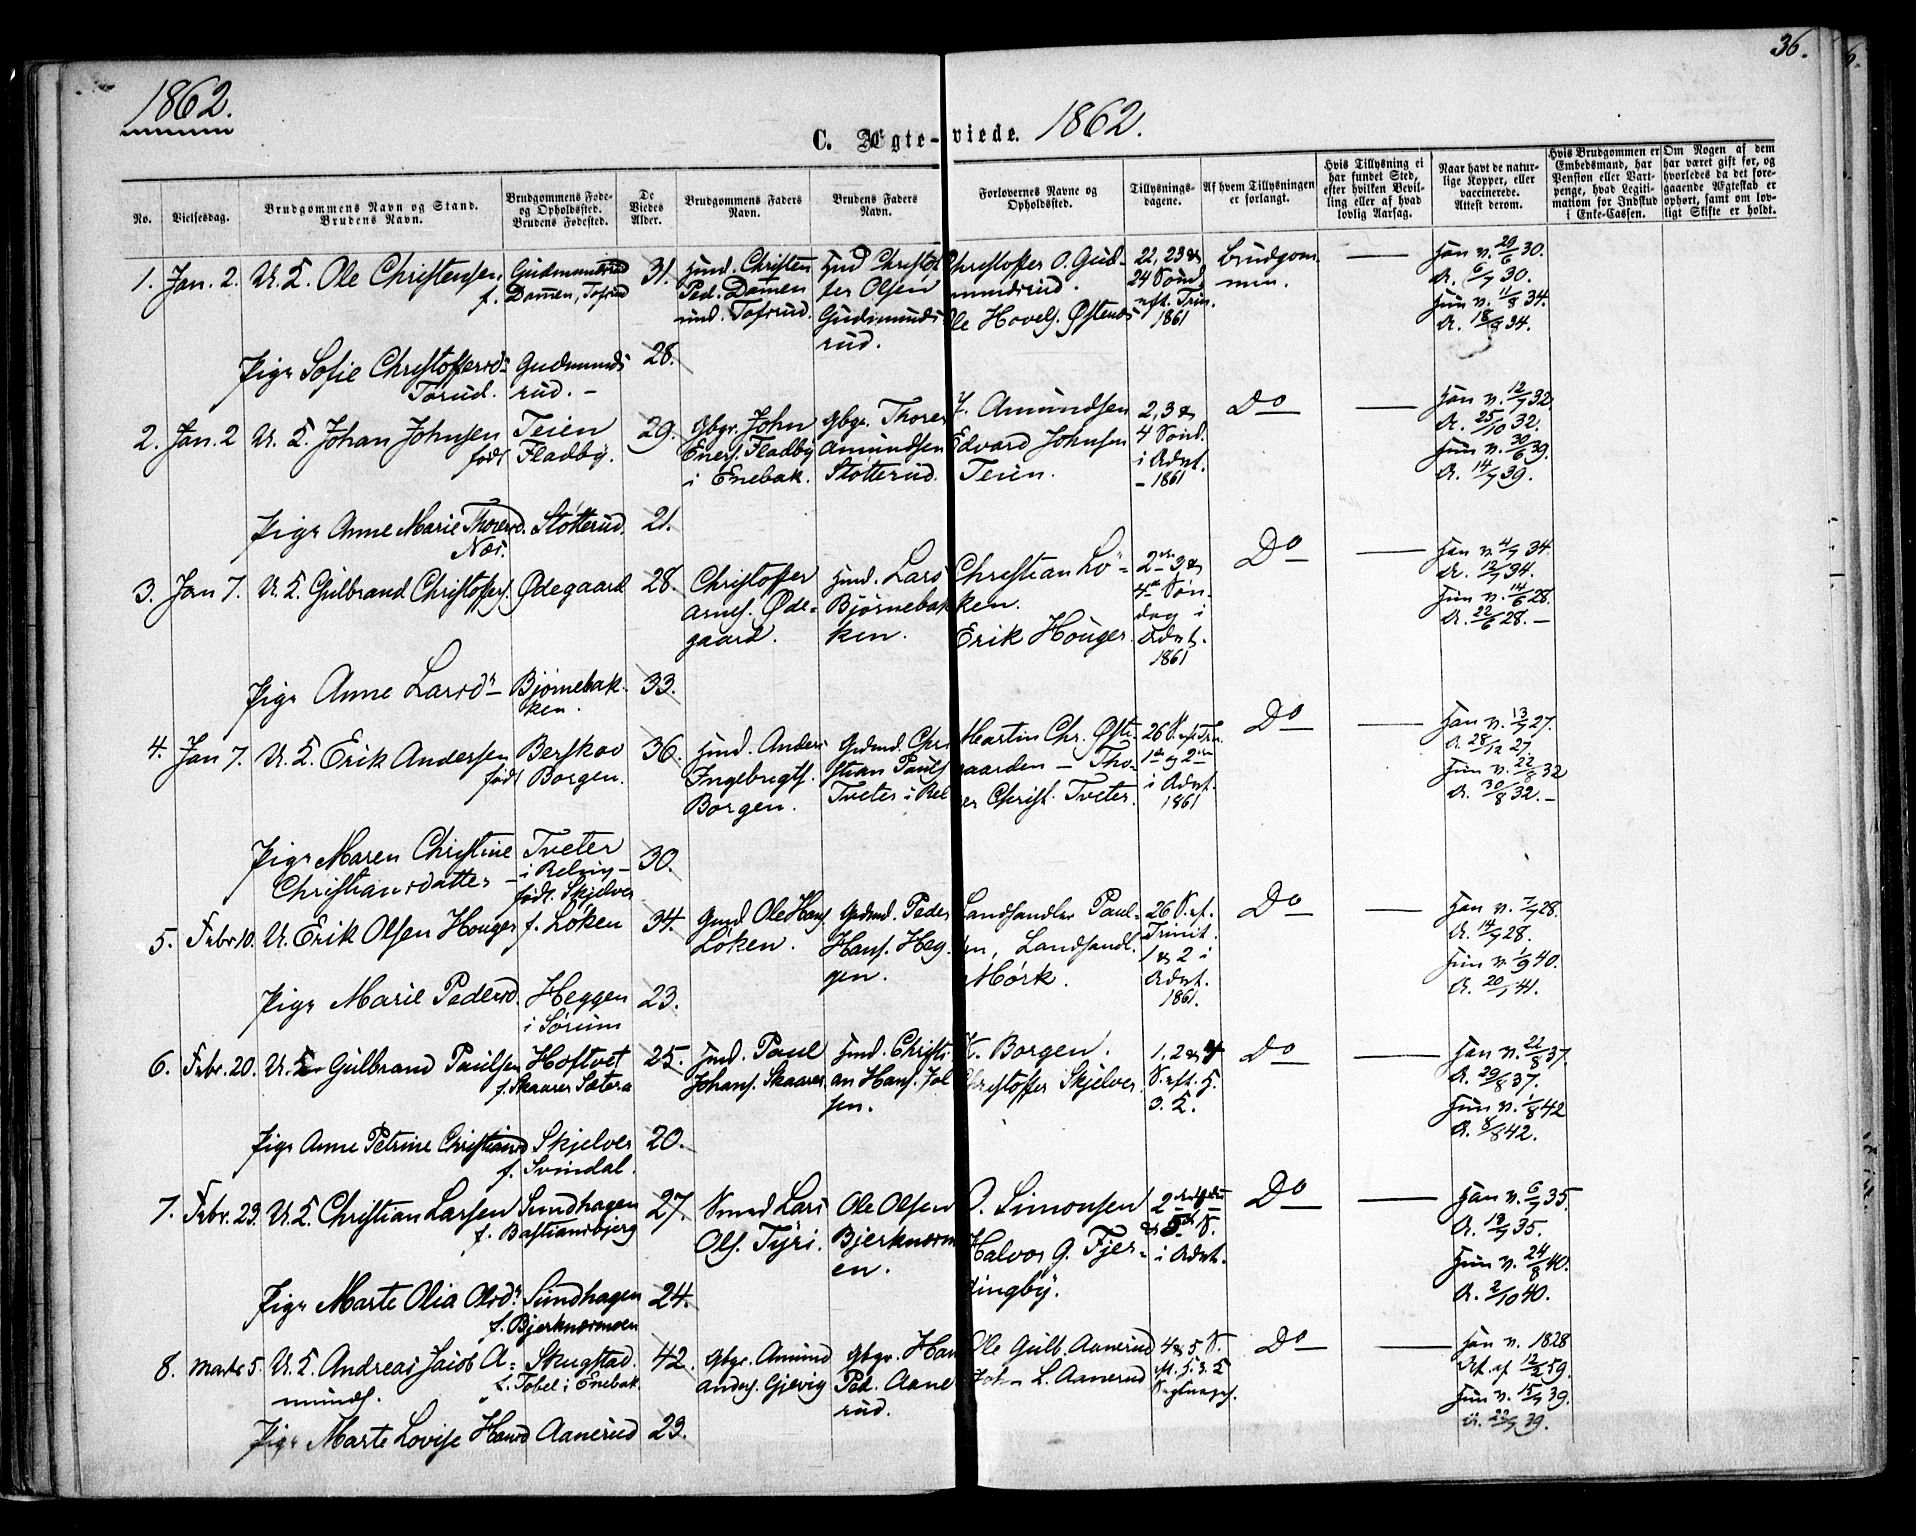 36.
1862.
1862.
C. Ægte-viede.
No.
Vielsesdag.
Brudgommens Navn og Stand.
Brudens Navn.
Brudgommens Føde-
og Opholdssted.
Brudens Fødested.
De
Viedes
Alder.
Brudgommens Faders
Navn.
Brudens Faders
Navn.
Forlovernes Navne og
Opholdssted.
Tillysnings-
dagene.
Af hvem Tillysningen
er forlangt.
Hvis Tillysning ei
har fundet Sted,
efter hvilken Bevil-
ling eller af hvad
lovlig Aarsag.
Naar havt de natur-
lige Kopper, eller
vaccinerede.
Attest derom.
Hvis Brudgommen er
Embedsmand, har
Pension eller Vart-
penge, hvad Legiti-
mation for Indskud
i Enke-Cassen.
Om Nogen af dem
har været gift før, og
hvorledes da det fore-
gaaende Ægteskab er
ophørt, samt om lov-
ligt Skifte er holdt.
1. Jan. 2. U. K. Ole Christensen
f.
Gudmundsrud
Damen, Tofsrud
31.
Husm. Christen
Ped. Damen
und. Tofsrud.
Husm. Christof
fer Olsen
Gudmunds
rud.
Christoffer O. Gud-
mundsrud.
Ole Hovels. Østenes
22, 23 &
24 Sønd.
eft. Trin.
1861
Brudgom
men.
Han v. 29/6 30.
A. 6/7 30.
Hun v. 11/8 34.
A. 18/8 34.
Pige Sofie Christoffersd.
Torud.
Gudmunds
rud. -
28.
2. Jan. 2 U. K. Johan Johnsen
født
Teien
Fladby.
29.
Gbgr. John
Eners. Fladby
i Enebak.
Gbgr. Thorer
Amundsen
Støtterud.
J. Amundsen
Edvard Johnsen
Teien.
2, 3 &
4 Sønd.
i Advt.
- 1861
Do
Han v. 12/7 32
A. 25/10 32.
Hun v. 30/6 39.
A. 14/7 39.
Pige Anne Marie Thoresd.
Næs.
Støtterud.
21.
3. Jan 7. U. K. Gulbrand Christoffers. Ødegaard
28.
Christoffer
Arnes. Øde-
gaard.
Husm. Lars
Bjørnebak
ken.
Christian Lö-
ken.
Erik Houger.
2den 3 &
4de Søn-
dag i
Advt.
1861
Do
Han v. 4/7 34.
A. 12/7 34.
Hun v. 14/6 28.
A. 22/6 28. -
Pige Anne Larsdr
Bjørnebak-
ken.
33.
4. Jan 7. U. K. Erik Andersen
født
Berskov
Borgen.
36.
Husm. Anders
Ingebrigts.
Borgen.
Grdmd. Chri
stian Pauls.
Tveter i Rel
Martin Chr. Øst-
gaarden - Tho-
rer Christ. Tveter.
26 S. eft. Trin.
1ste og 2den
i Advt.
1861
Do
Han v. 13/7 27.
A. 28/12 27.
Hun v. 22/8 32
A. 30/8 32. -
Pige Maren Christine
Christiansdatter
Tveter
i Reling -
født Skjelver
30.
5. Febr 10. U. Erik Olsen Houger
f. Löken
34.
Grmd. Ole Hans
Löken.
Grdmd. Peder
Hans. Heg-
gen.
Landhandler Paul-
en, Landhandl.
Mørk.
26 S. ef.
Trinit.
1 & 2 i
Advt.
1861.
Do
Han v. 7/7 28.
A. 14/7 28.
Hun v. 1/9 40.
A. 20/1 41.
Pige Marie Pedersd.
Heggen
i Sørum
23.
6. Febr. 20. U. K. Gulbrand Paulsen
Hoftvet
f. Skaarer Sætera
25.
Husm. Paul
Johans. Skaarer
Husm. Christi-
an Hans. Jol
sen.
K. Borgen.
Christoffer Skjelver
1, 2 & 4
S. eft. H.
3. K.
Do
Han v. 22/8 37.
A. 29/8 37.
Hun v. 1/8 42
A. 8/8 42.
Pige Anne Petrine Christiansd
Skjelver
f. Svindal.
20.
7. Febr. 23. U. K. Christian Larsen
Sundhagen
f. Bastiansbjerg
27.
Smed Lars
Ols. Tyri.
Ole Olsen
Bjerknesmo
en.
O. Simonsen
Halvor G. Fjer-
dingby.
i Advt.
Do
Han v. 6/7 35.
A. 12/7 35.
Hun v. 24/8 40.
A. 2/10 40.
Pige Marte Olia Olsdr
Sundhagen
f. Bjerknesmoen
24.
8. Marts 5. U. K. Andreas Jacob A-
munds.
Skugstad.
f. Tobel i Enebak.
42.
Gbgr. Amund
Anders. Gjevig
Gbgr. Han
Ped. Aane
rud.
Ole Gulb. Aanerud
John L. Aanerud
4 & 5 S.
Do
Han v. 1828
Hun v. 15/7 39.
A. 22/7 39.
Pige Marte Lovise Hansd
Aanerud
23.